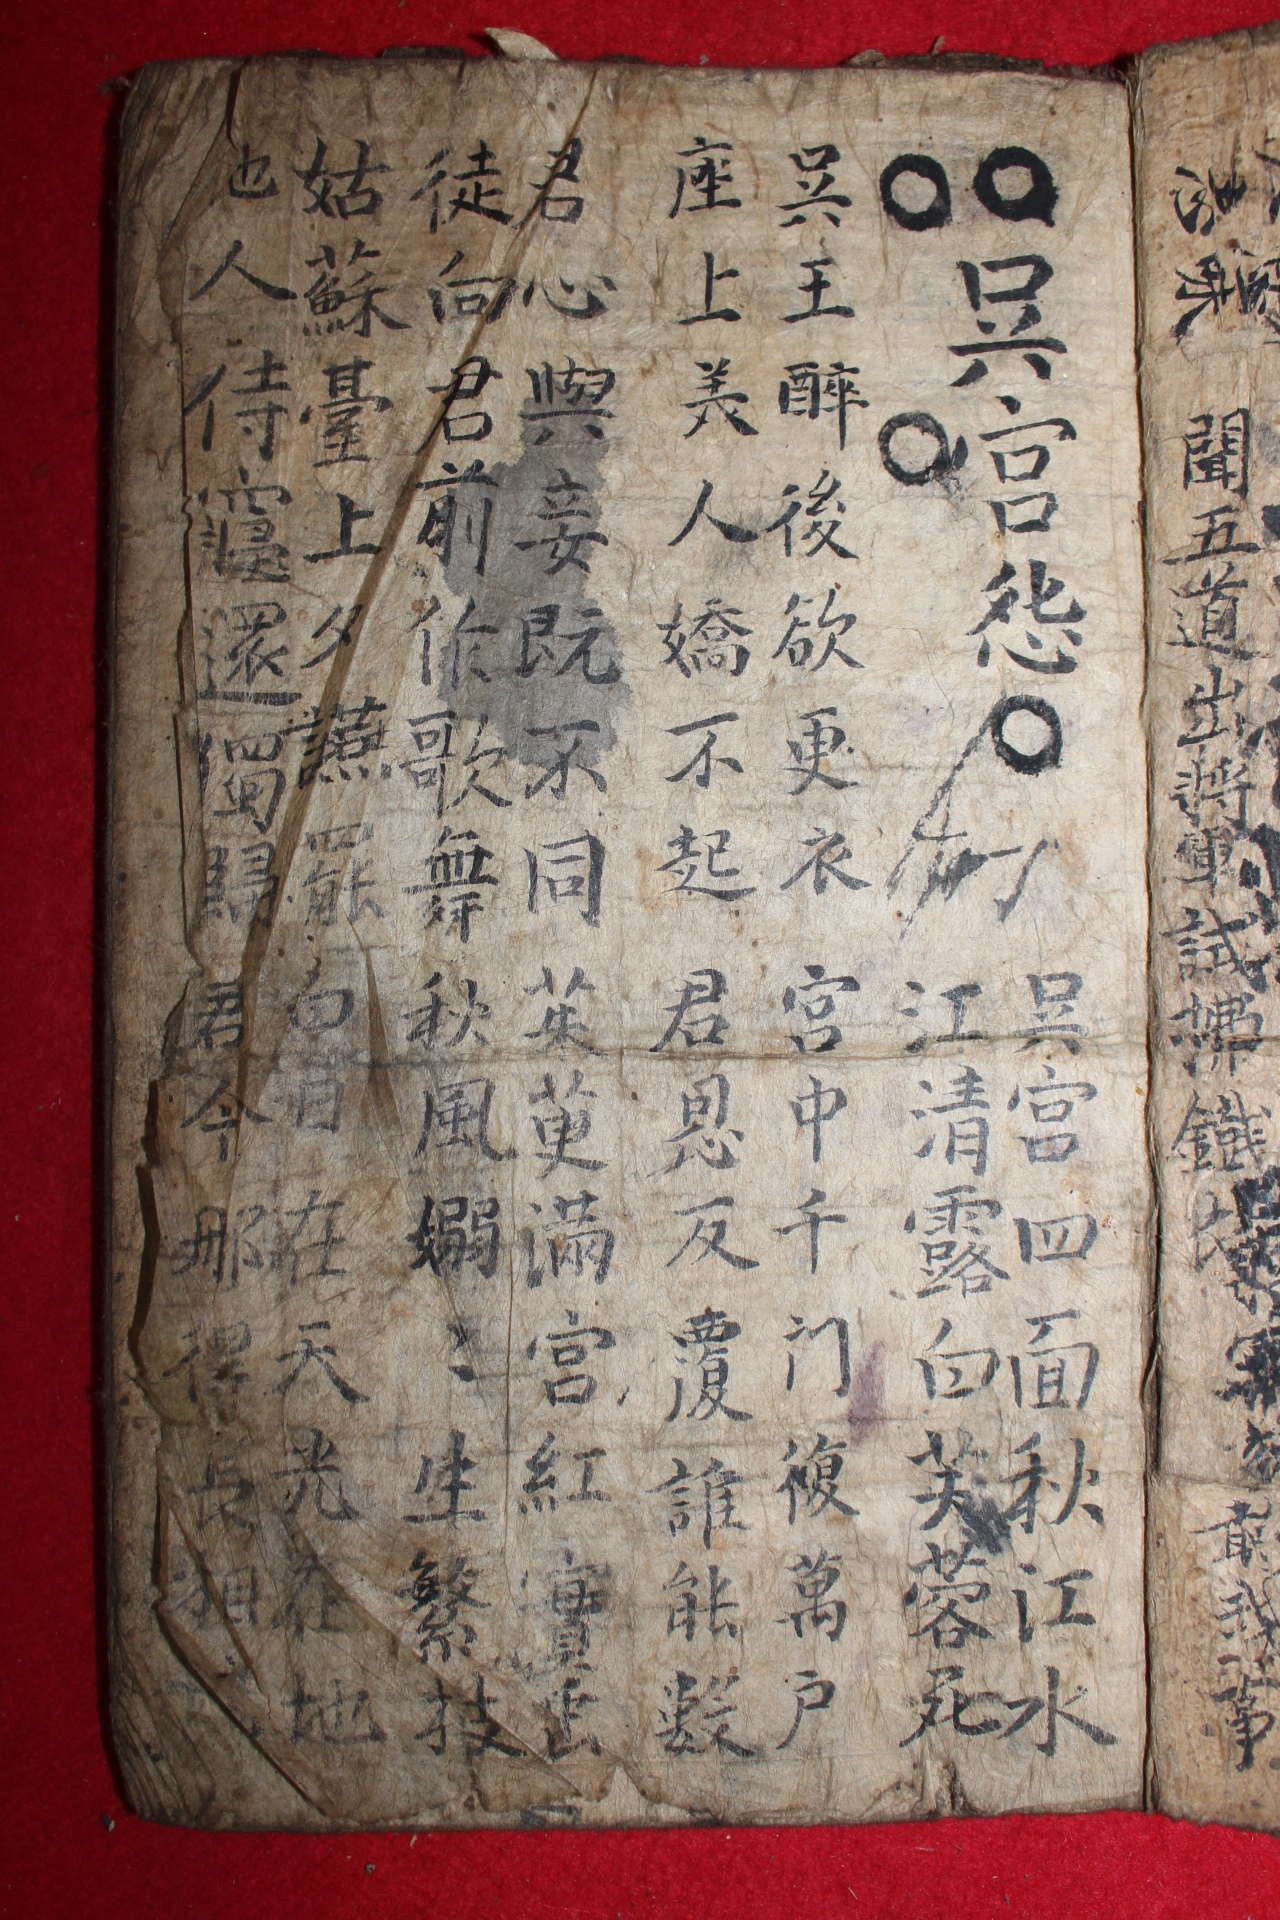 聞五道出將軍試拂鐵衣
吳宮怨
吳宮四面秋江水
江清露白芙蓉死
吳王醉後欲更衣 宮中千門復萬戶
座上美人嬌不起 君恩反覆誰能數
君心與妾既不同 茱萸滿宮紅實垂
徒向君前作歌舞 秋風嫋〻生繁技
姑蘇臺上夕讌罷 白日在天光在地
也人侍寢還獨歸 君今那得長相